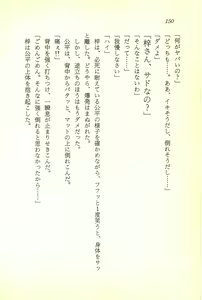 150
「何がヤバいの？」
「どっちも……。ああ、イキそうだし、倒れそうだし……」
「ダメよ」
「そんなことはないわ」
「梓さん、サドなの？」
「だって……」
「我慢しなさい」
「ハイ」
梓は、必死に耐えている公平の様子を確かめながら、フフッと１度笑うと、身体をサッ
と離した。どうやら、爆発はまぬがれたようだ。
しかし、逆立ちのほうはもうダメだった。
公平は、背中からバタッと、マットの上に倒れこんだ。
「痛ェ!!」
背中を強く打ちつけて、一瞬息が止まりそうになる。
「ごめんごめん。そんなに強く倒れると思わなかったから……」
梓は公平の上体を抱き起こした。